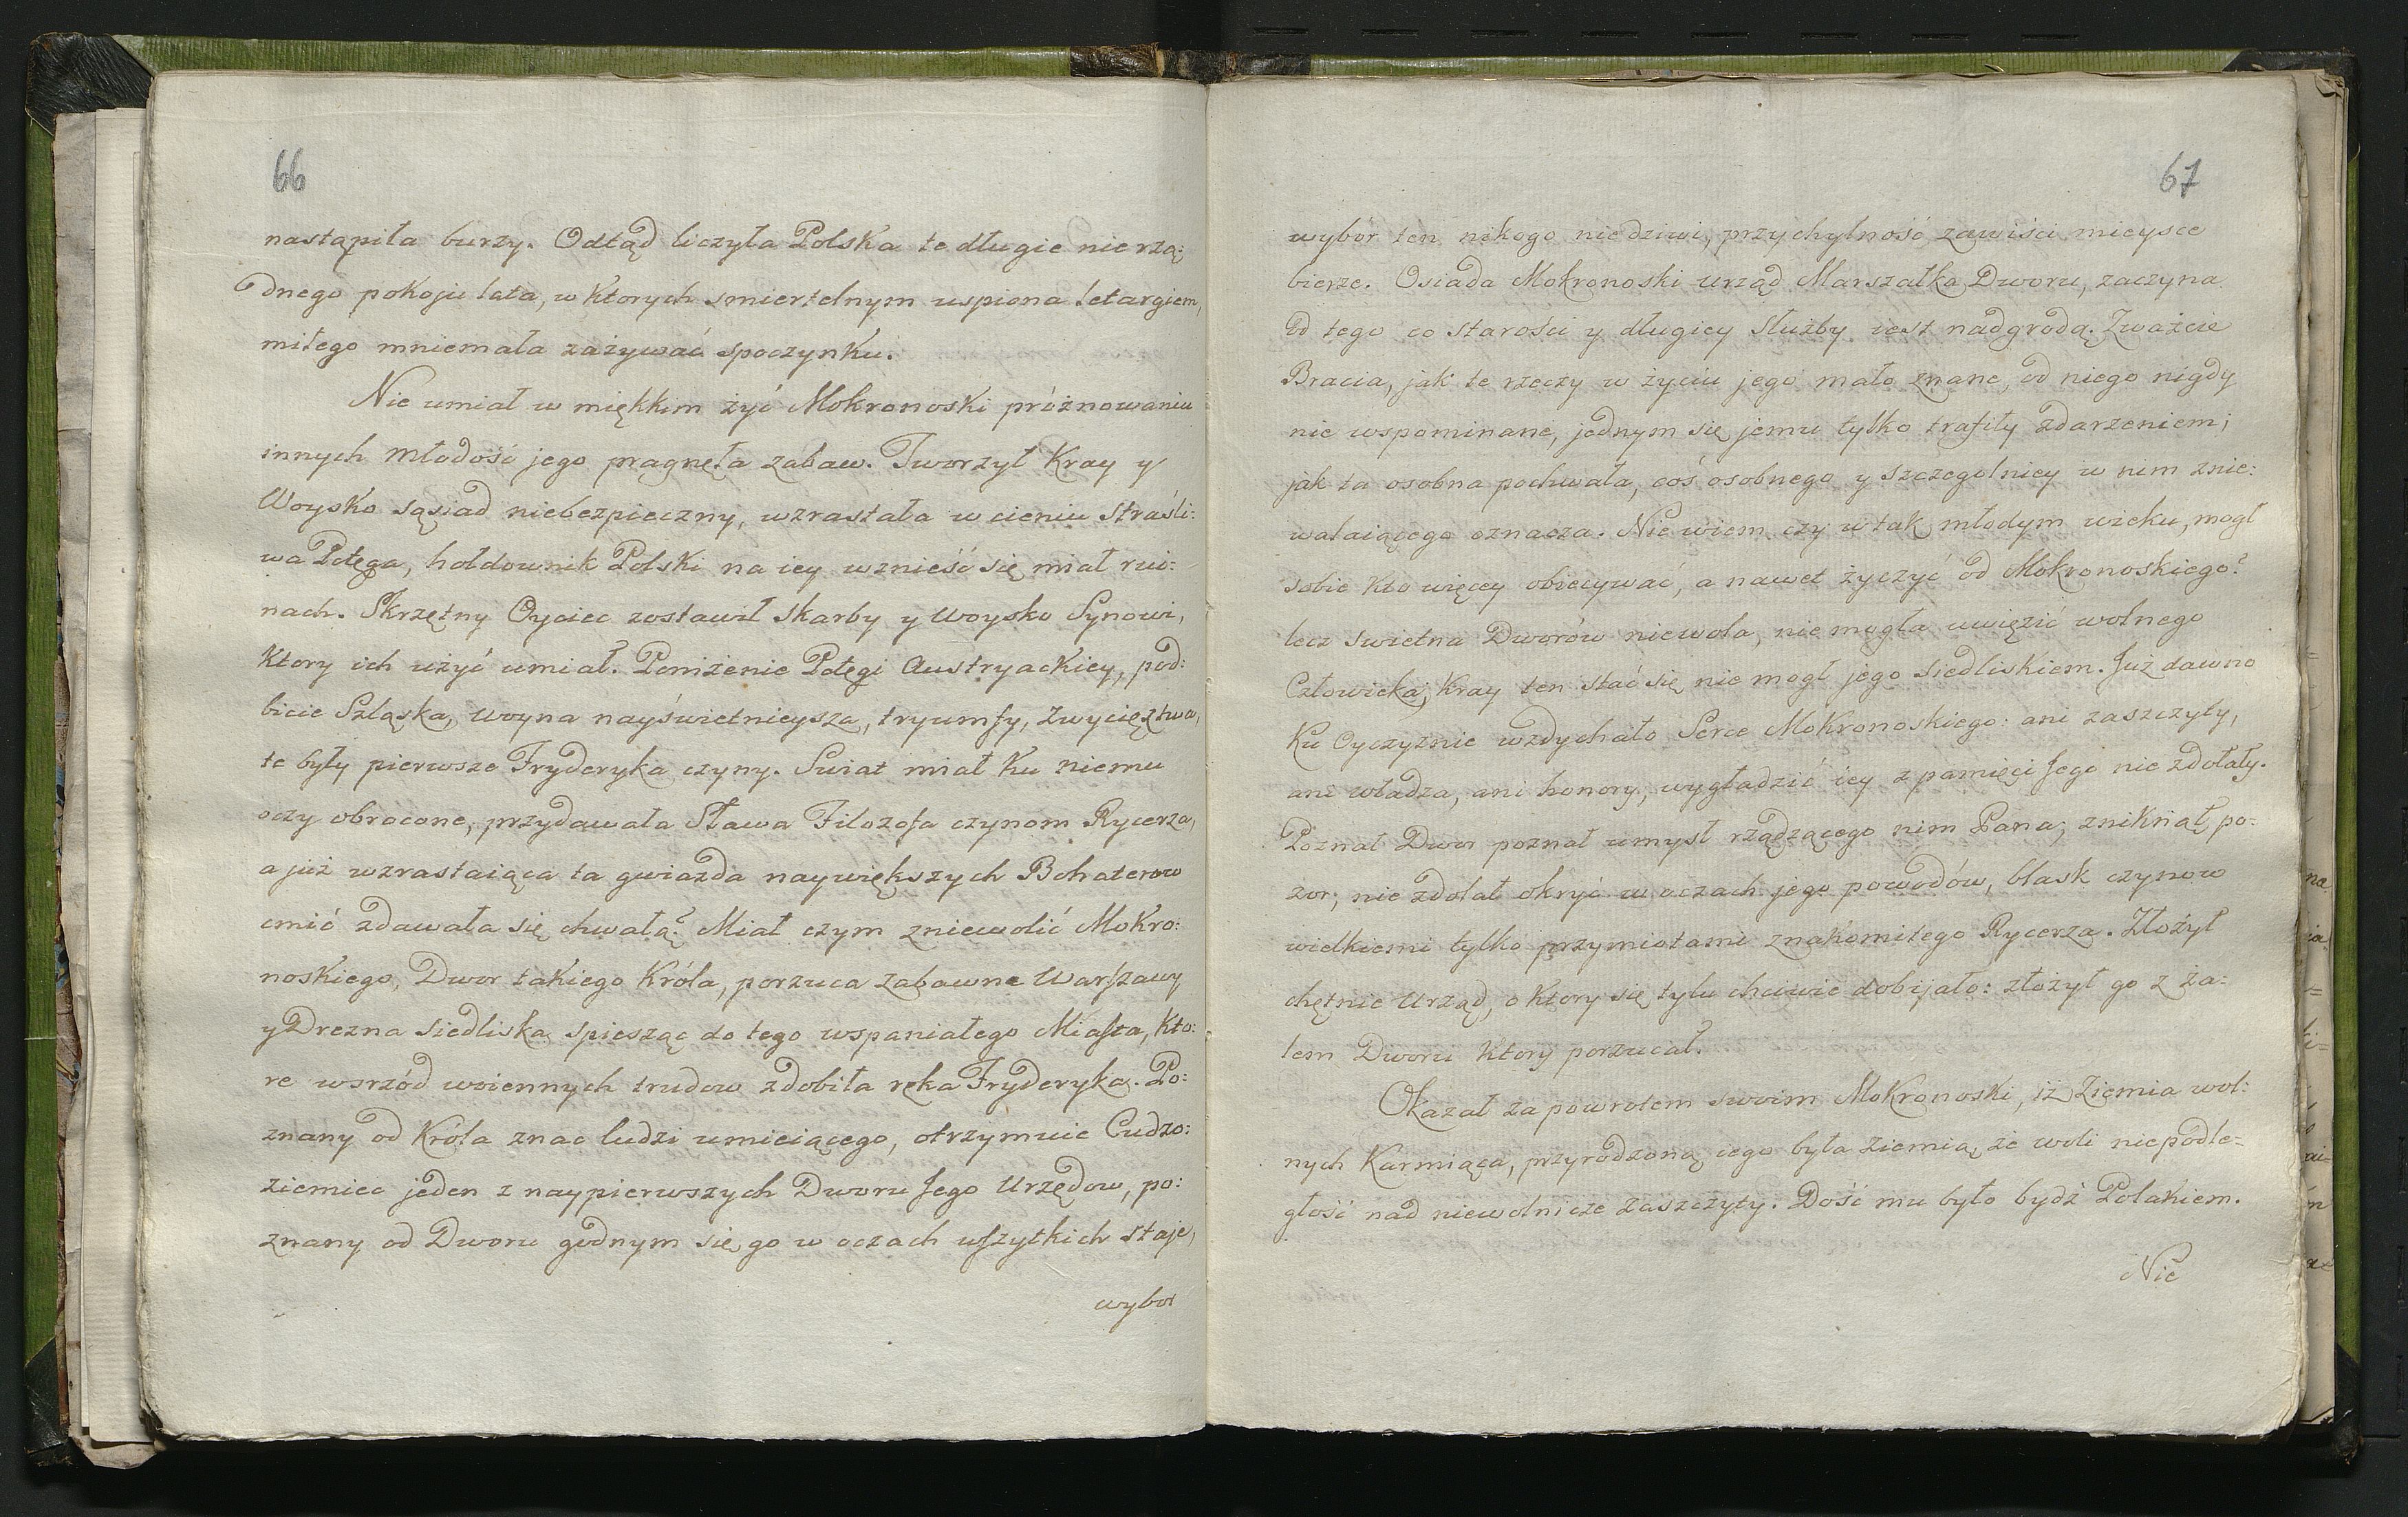 66
nastąpiła burzy. Odtąd liczyła Polska te długie nierzą:
dnego pokoju lata, w ktorych smiertelnym uspiona letargiem,
miłego mniemała zażywać spoczynku.
Nie umiał w miękkim żyć Mokronoski próżnowaniu
innych młodość jego pragnęła zabaw. Tworzył Kray y
Woysko sąsiad niebezpieczny, wzrastała w cieniu straśli:
wa Potęga, hołdownik Polski na iey wznieść się miał rui:
nach. Skrzętny Oyciec zostawił skarby y woysko Synowi,
Ktory ich użyć umiał. Poniżenie Potęgi Austryackiey, pod:
bicie Szląska, woyna nayświetnieysza, tryumfy, Zwycięztwa,
te były pierwsze Fryderyka czyny. Swiat miał ku niemu
oczy obrocone, przydawała Sława Filozofa czynom Rycerza,
a już wzrastaiąca ta gwiazda naywiększych Bohaterow
cmić zdawała się chwałą. Miał czym zniewolić Mokro:
noskiego, Dwor takiego Króla, porzuca zabawne Warszawy
y Drezna siedliska spiesząc do tego wspaniałego Miasta, kto:
re wsrzód woiennych trudow zdobiła ręka Fryderyka. Po:
znany od Króla znac ludzi umieiącego, otrzymuie Cudzo:
ziemiec jeden z naypierwszych Dworu Jego Urzędow, po:
znany od Dworu godnym się go w oczach wszytkich staje,
wybor
67
wybór ten nikogo nie dziwi, przychylność zawiści mieysce
bierze. Osiada Mokronoski urząd Marszałka Dworu, zaczyna
od tego co starości y długiey służby iest nadgrodą. Zważcie
Bracia, jak te rzeczy w życiu jego mało znane, od niego nigdy
nie wspominane, jednym się jemu tylko trafiły zdarzeniem;
jak ta osobna pochwała, coś osobnego y szczegolniey w nim znie:
walaiącego oznacza. Nie wiem czy w tak młodym wieku, mogł
sobie kto więcey obiecywać, a nawet życzyć od Mokronoskiego?
lecz swietna Dworów niewola, nie mogła uwięzić wolnego
Człowieka, Kray ten stać się nie mogł jego siedliskiem. Już dawno
Ku Oyczyznie wzdychało Serce Mokronoskiego: ani zaszczyty,
ani władza, ani honory, wygładzić iey z pamięci Jego nie zdołały.
Poznał Dwor poznał umysł rządzącego nim Pana; zniknął po:
zor; nie zdołał okryć w oczach jego powodów, blask czynow
wielkiemi tylko przymiotami znakomitego Rycerza. Złożył
chętnie Urząd, o ktory się tylu chciwie dobijało: złożył go z ża:
lem Dworu ktory porzucał.
Okazał za powrotem swoim Mokronoski, iż Ziemia wol:
nych Karmiąca, przyrodzoną iego była ziemią, że woli niepodle=
głość nad niewolnicze zaszczyty. Dość mu było bydź Polakiem.
Nie